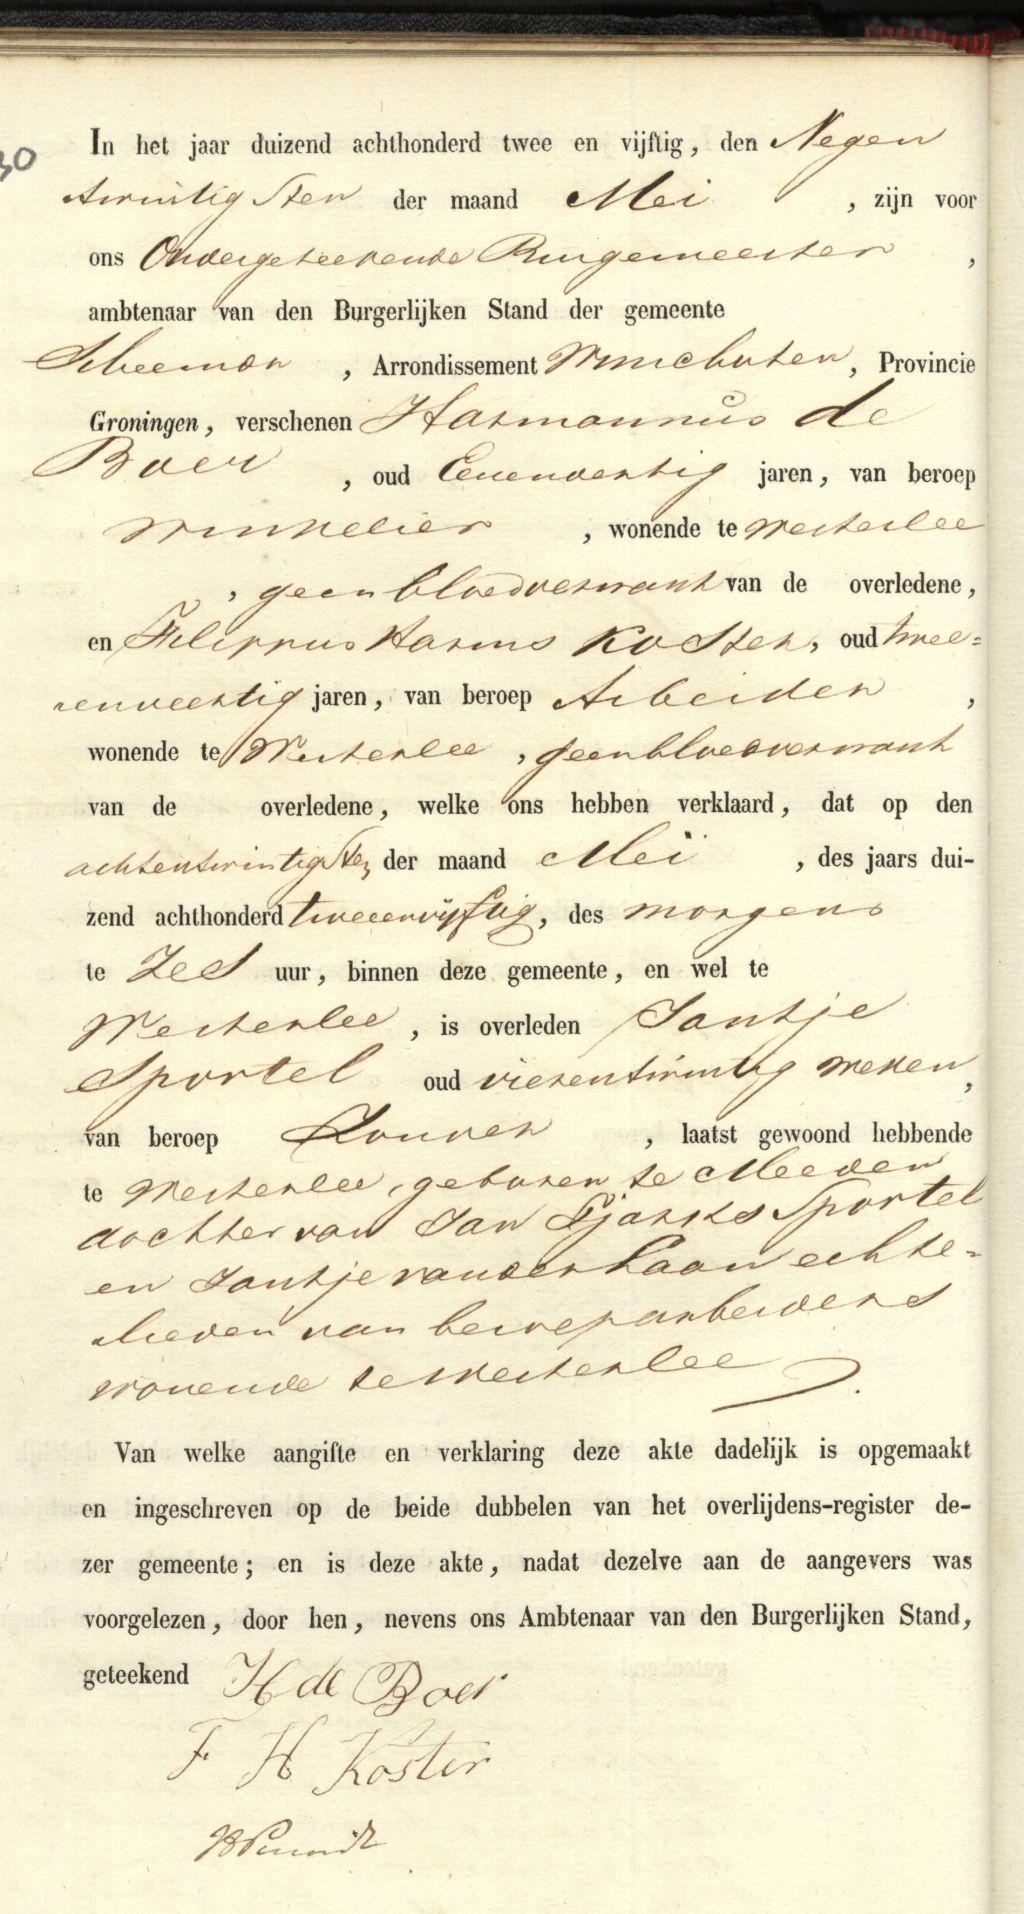 30
In het jaar duizend achthonderd twee en vijftig, den Negen
twintigsten der maand Mei , zijn voor
ons Ondergeteekende Burgemeester ,
ambtenaar van den Burgerlijken Stand der gemeente
Scheemda , Arrondissement Winschoten, Provincie
Groningen, verschenen Harmannus de
Boer , oud Eenenveertig jaren, van beroep
Winkelier , wonende te Westerlee
, geen bloedverwant van de overledene,
en Filippus Harms Koster, oud twee=
enveertig jaren, van beroep Arbeider ,
wonende te Westerlee , geen bloedverwant
van de overledene, welke ons hebben verklaard, dat op den
achtentwintigsten der maand Mei , des jaars dui-
zend achthonderd tweeenvijftig, des morgens
te Zes uur, binnen deze gemeente, en wel te
Westerlee , is overleden Jantje
Sportel oud vierentwintig weken,
van beroep Zonder , laatst gewoond hebbende
te Westerlee, geboren te Meeden
dochter van Jan Tjarks Sportel
en Jantje van der Laan echte=
lieden van beroep arbeiders
wonende te Westerlee .
Van welke aangifte en verklaring deze akte dadelijk is opgemaakt
en ingeschreven op de beide dubbelen van het overlijdens-register de-
zer gemeente; en is deze akte, nadat dezelve aan de aangevers was
voorgelezen, door hen, nevens ons Ambtenaar van den Burgerlijken Stand,
geteekend H de Boer
F H Koster